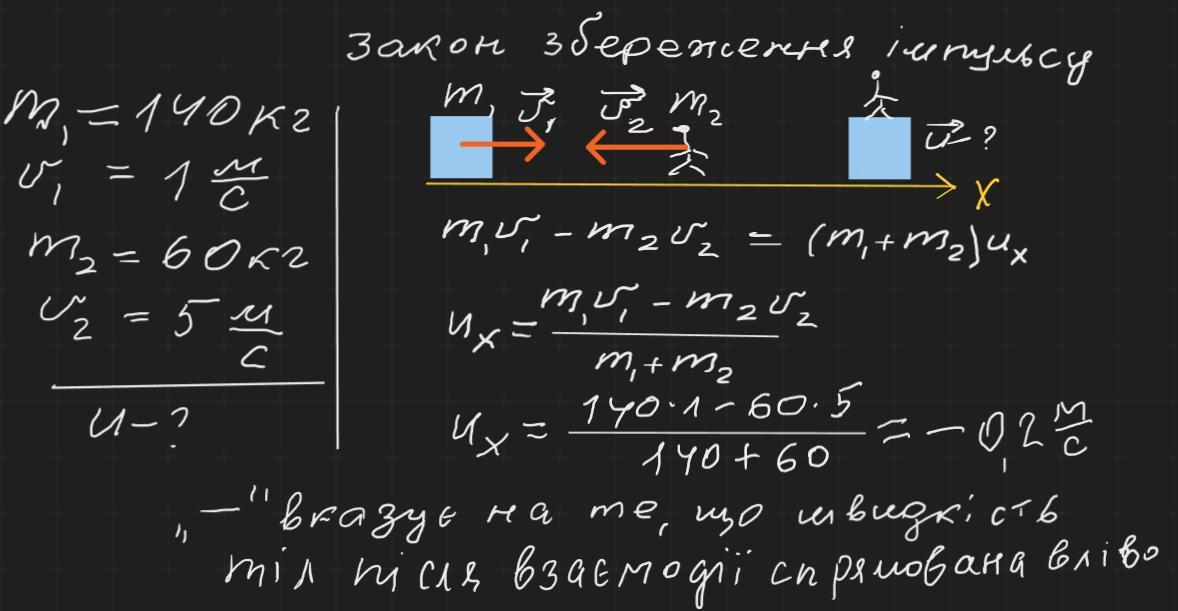 Закон збереження імпульсу
m₁ = 140 кг
v₁ = 1 м/с
m₂ = 60 кг
v₂ = 5 м/с
u - ?
m₁ v⃗₁ v⃗₂ m₂ u⃗ - ?
x
m₁v₁ - m₂v₂ = (m₁ + m₂)uₓ
uₓ = (m₁v₁ - m₂v₂)/(m₁ + m₂)
uₓ = (140·1 - 60·5)/(140 + 60) = -0,2 м/с
„—" вказує на те, що швидкість
тіл після взаємодії спрямована вліво